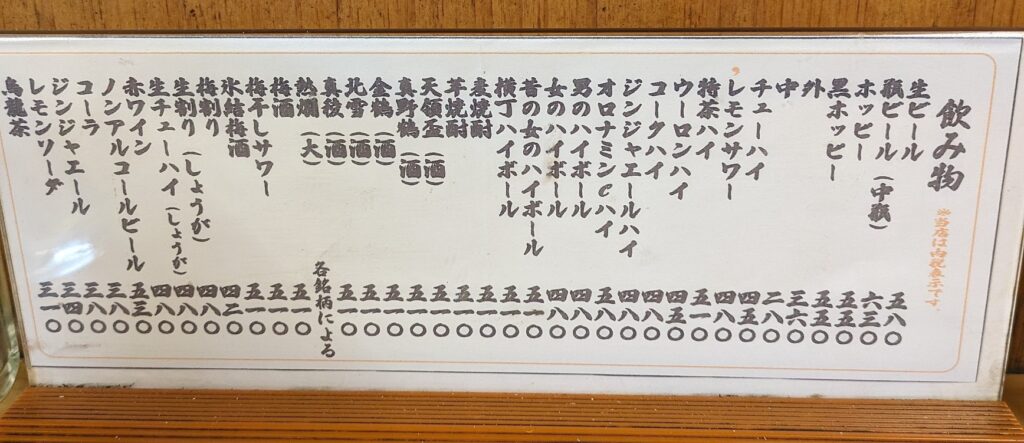 飲み物
※当店は内税表示です。
生ビール 五八〇
瓶ビール（中瓶） 六三〇
ホッピー 五五〇
黒ホッピー 五五〇
外 三六〇
中 二八〇
チューハイ 四五〇
レモンサワー 四八〇
特茶ハイ 五一〇
ウーロンハイ 四五〇
コークハイ 四八〇
ジンジャエールハイ 四八〇
オロナミンCハイ 五八〇
男のハイボール 四八〇
女のハイボール 四八〇
昔の女のハイボール 五一〇
横丁ハイボール 五一〇
麦焼酎 五一〇
芋焼酎 五一〇
天領盃（酒） 五一〇
真野鶴（酒） 五一〇
金鶴（酒） 五一〇
北雪（酒） 五一〇
真稜（酒） 五一〇
熱燗（大） 各銘柄による
梅酒 五一〇
梅干しサワー 五一〇
氷結梅酒 五一〇
梅割り 四二〇
生割り（しょうが） 四八〇
生チューハイ（しょうが） 四八〇
赤ワイン 四八〇
ノンアルコールビール 五三〇
コーラ 三八〇
ジンジャエール 三八〇
レモンソーダ 三四〇
烏龍茶 三一〇